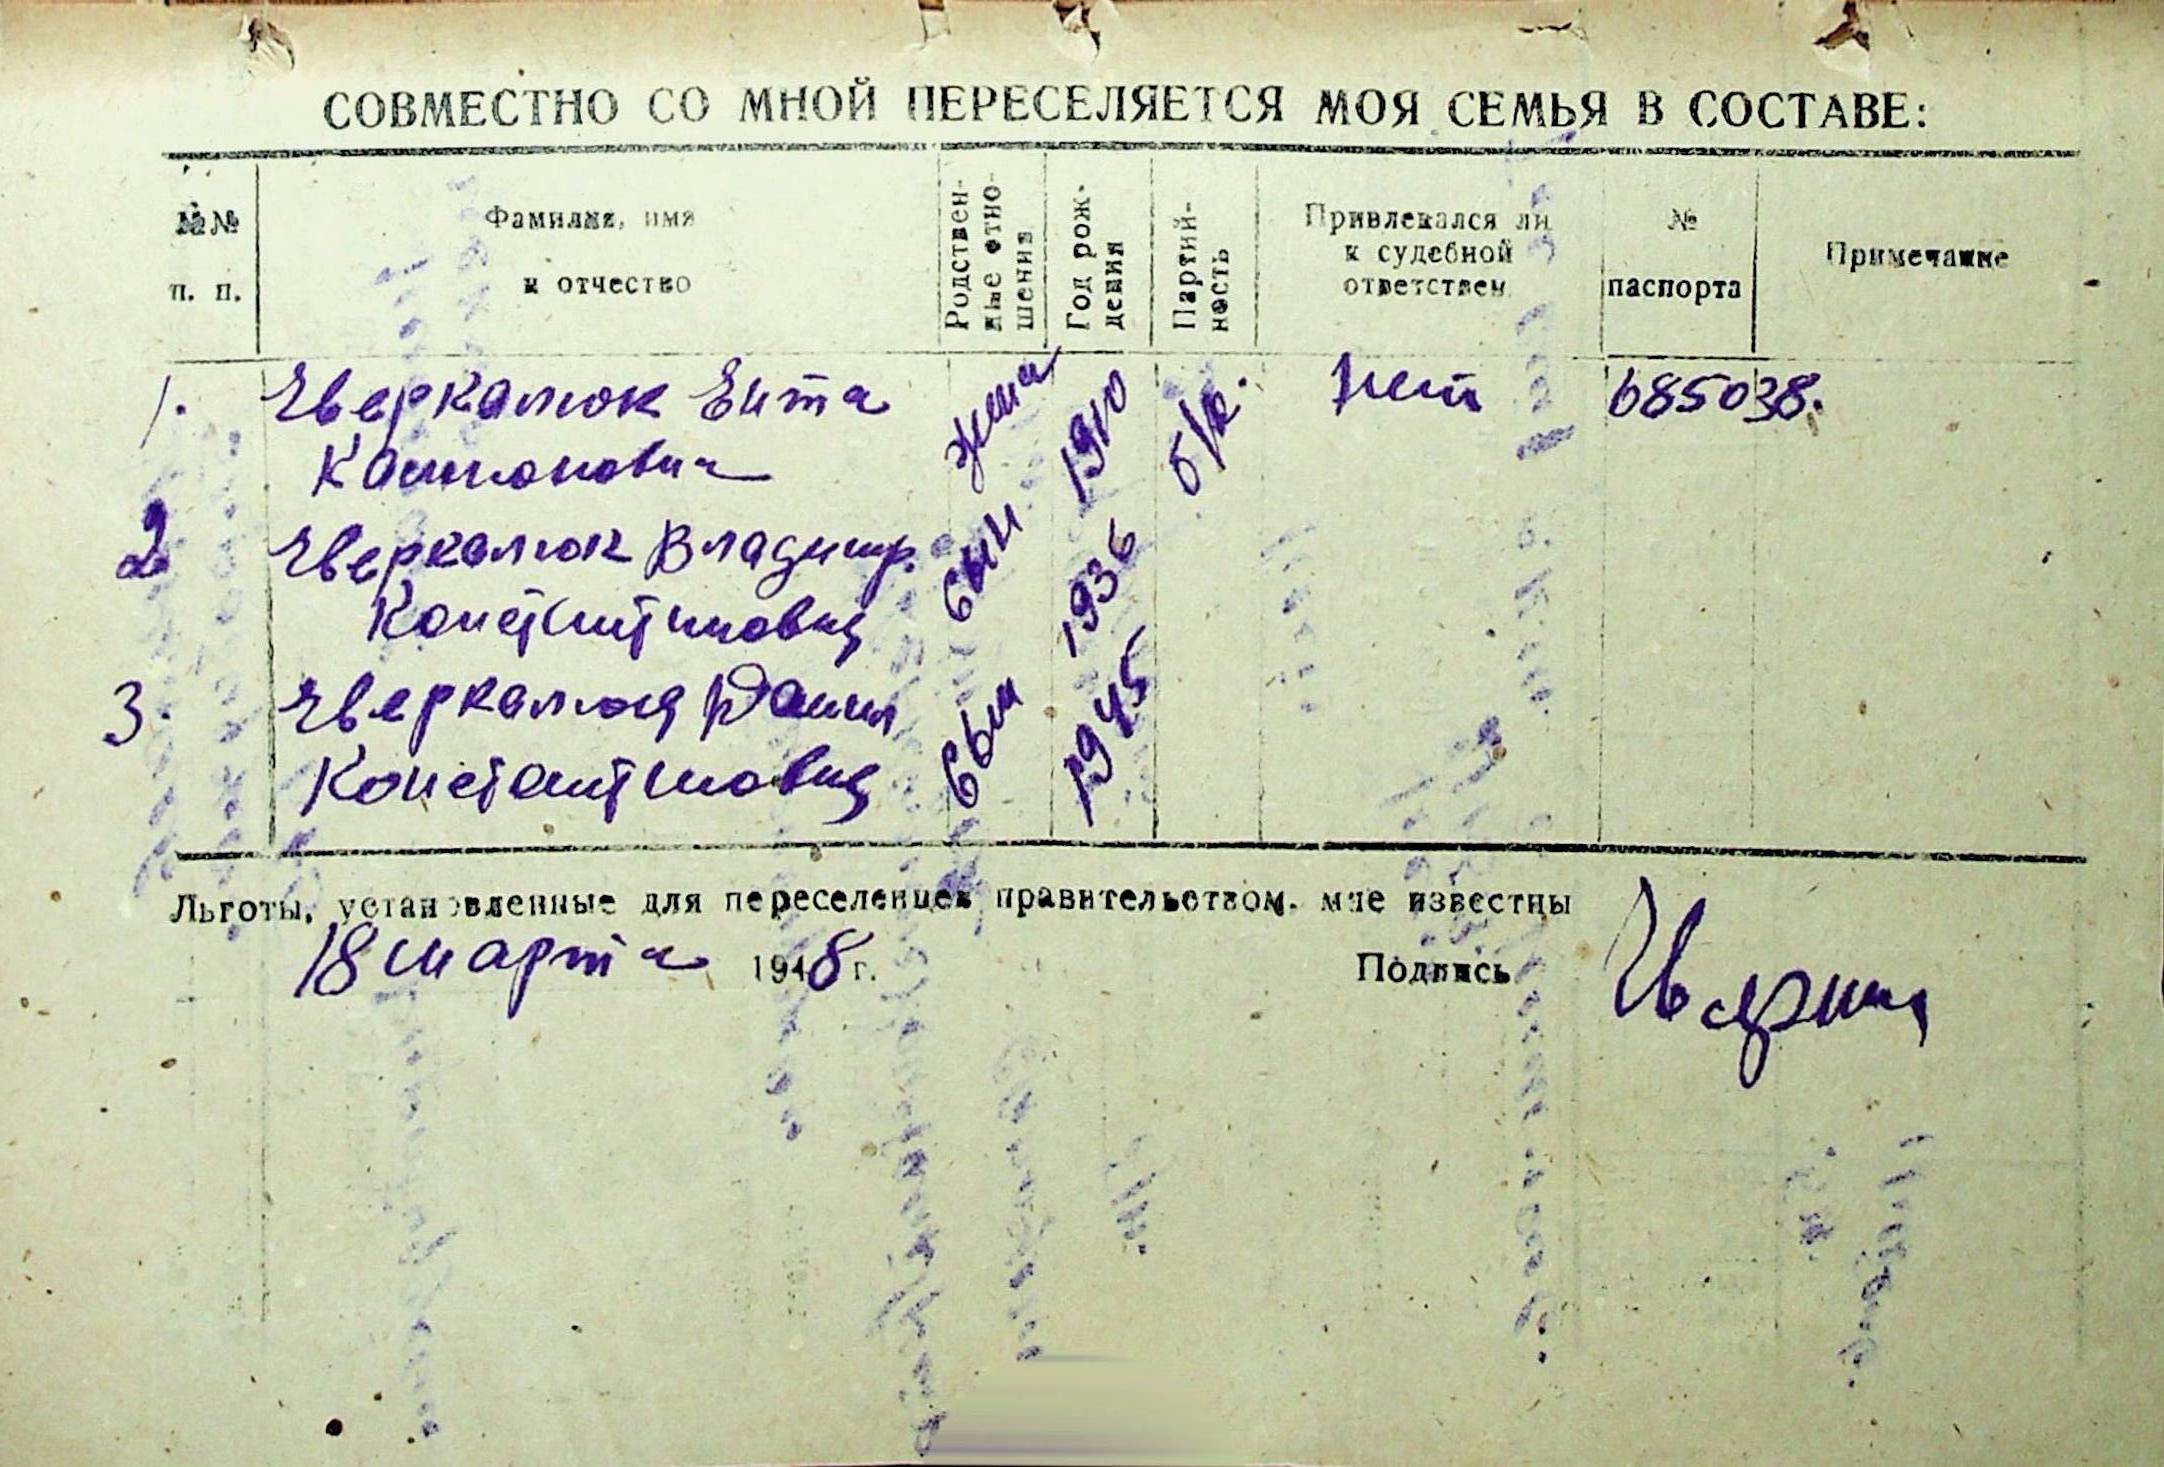 СОВМЕСТНО СО МНОЙ ПЕРЕСЕЛЯЕТСЯ МОЯ СЕМЬЯ В СОСТАВЕ:
№№ п. п. Фамилия, имя и отчество Родствен-ные отно-шения Год рож-дения Партий-ность Привлекался ли к судебной ответствен № паспорта Примечание
1. Зверкалюк Ента жена 1910 б/п. нет 685038.
2 Зверкалюк Владимир. сын 1936
Константинович
3. Зверкалюк Данил сын 1945
Константинович
Льготы, установленные для переселенцев правительством. мне известны
18 марта 1948 г. Подпись